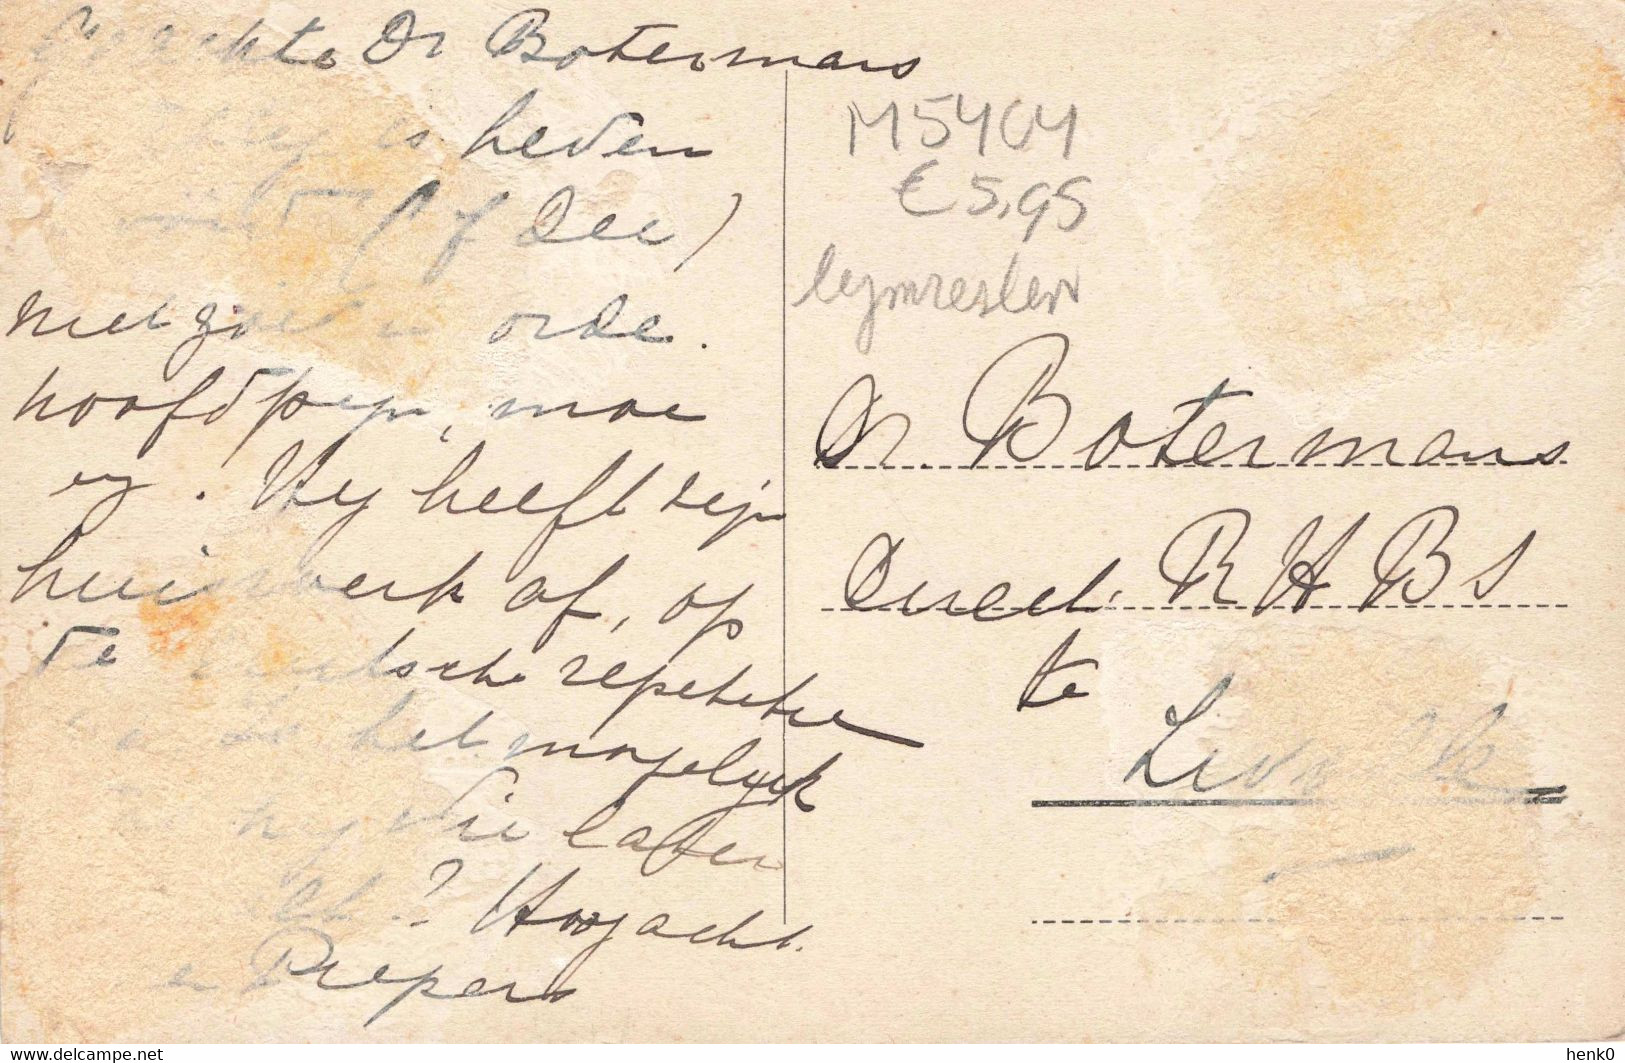 Geachte Dr Botermans
is heden
(1f Dec)
niet goed in orde.
hoofdpijn, moe
enz. Hij heeft zijn
huiswerk af, op
de Duitsche repetitie
na. Is het mogelijk
hij die later
? Hoogacht.
Piepers
M5404
€ 5,95
lijmresten
Dr. Botermans
Direct. R H B S
te
www.delcampe.net
henk0